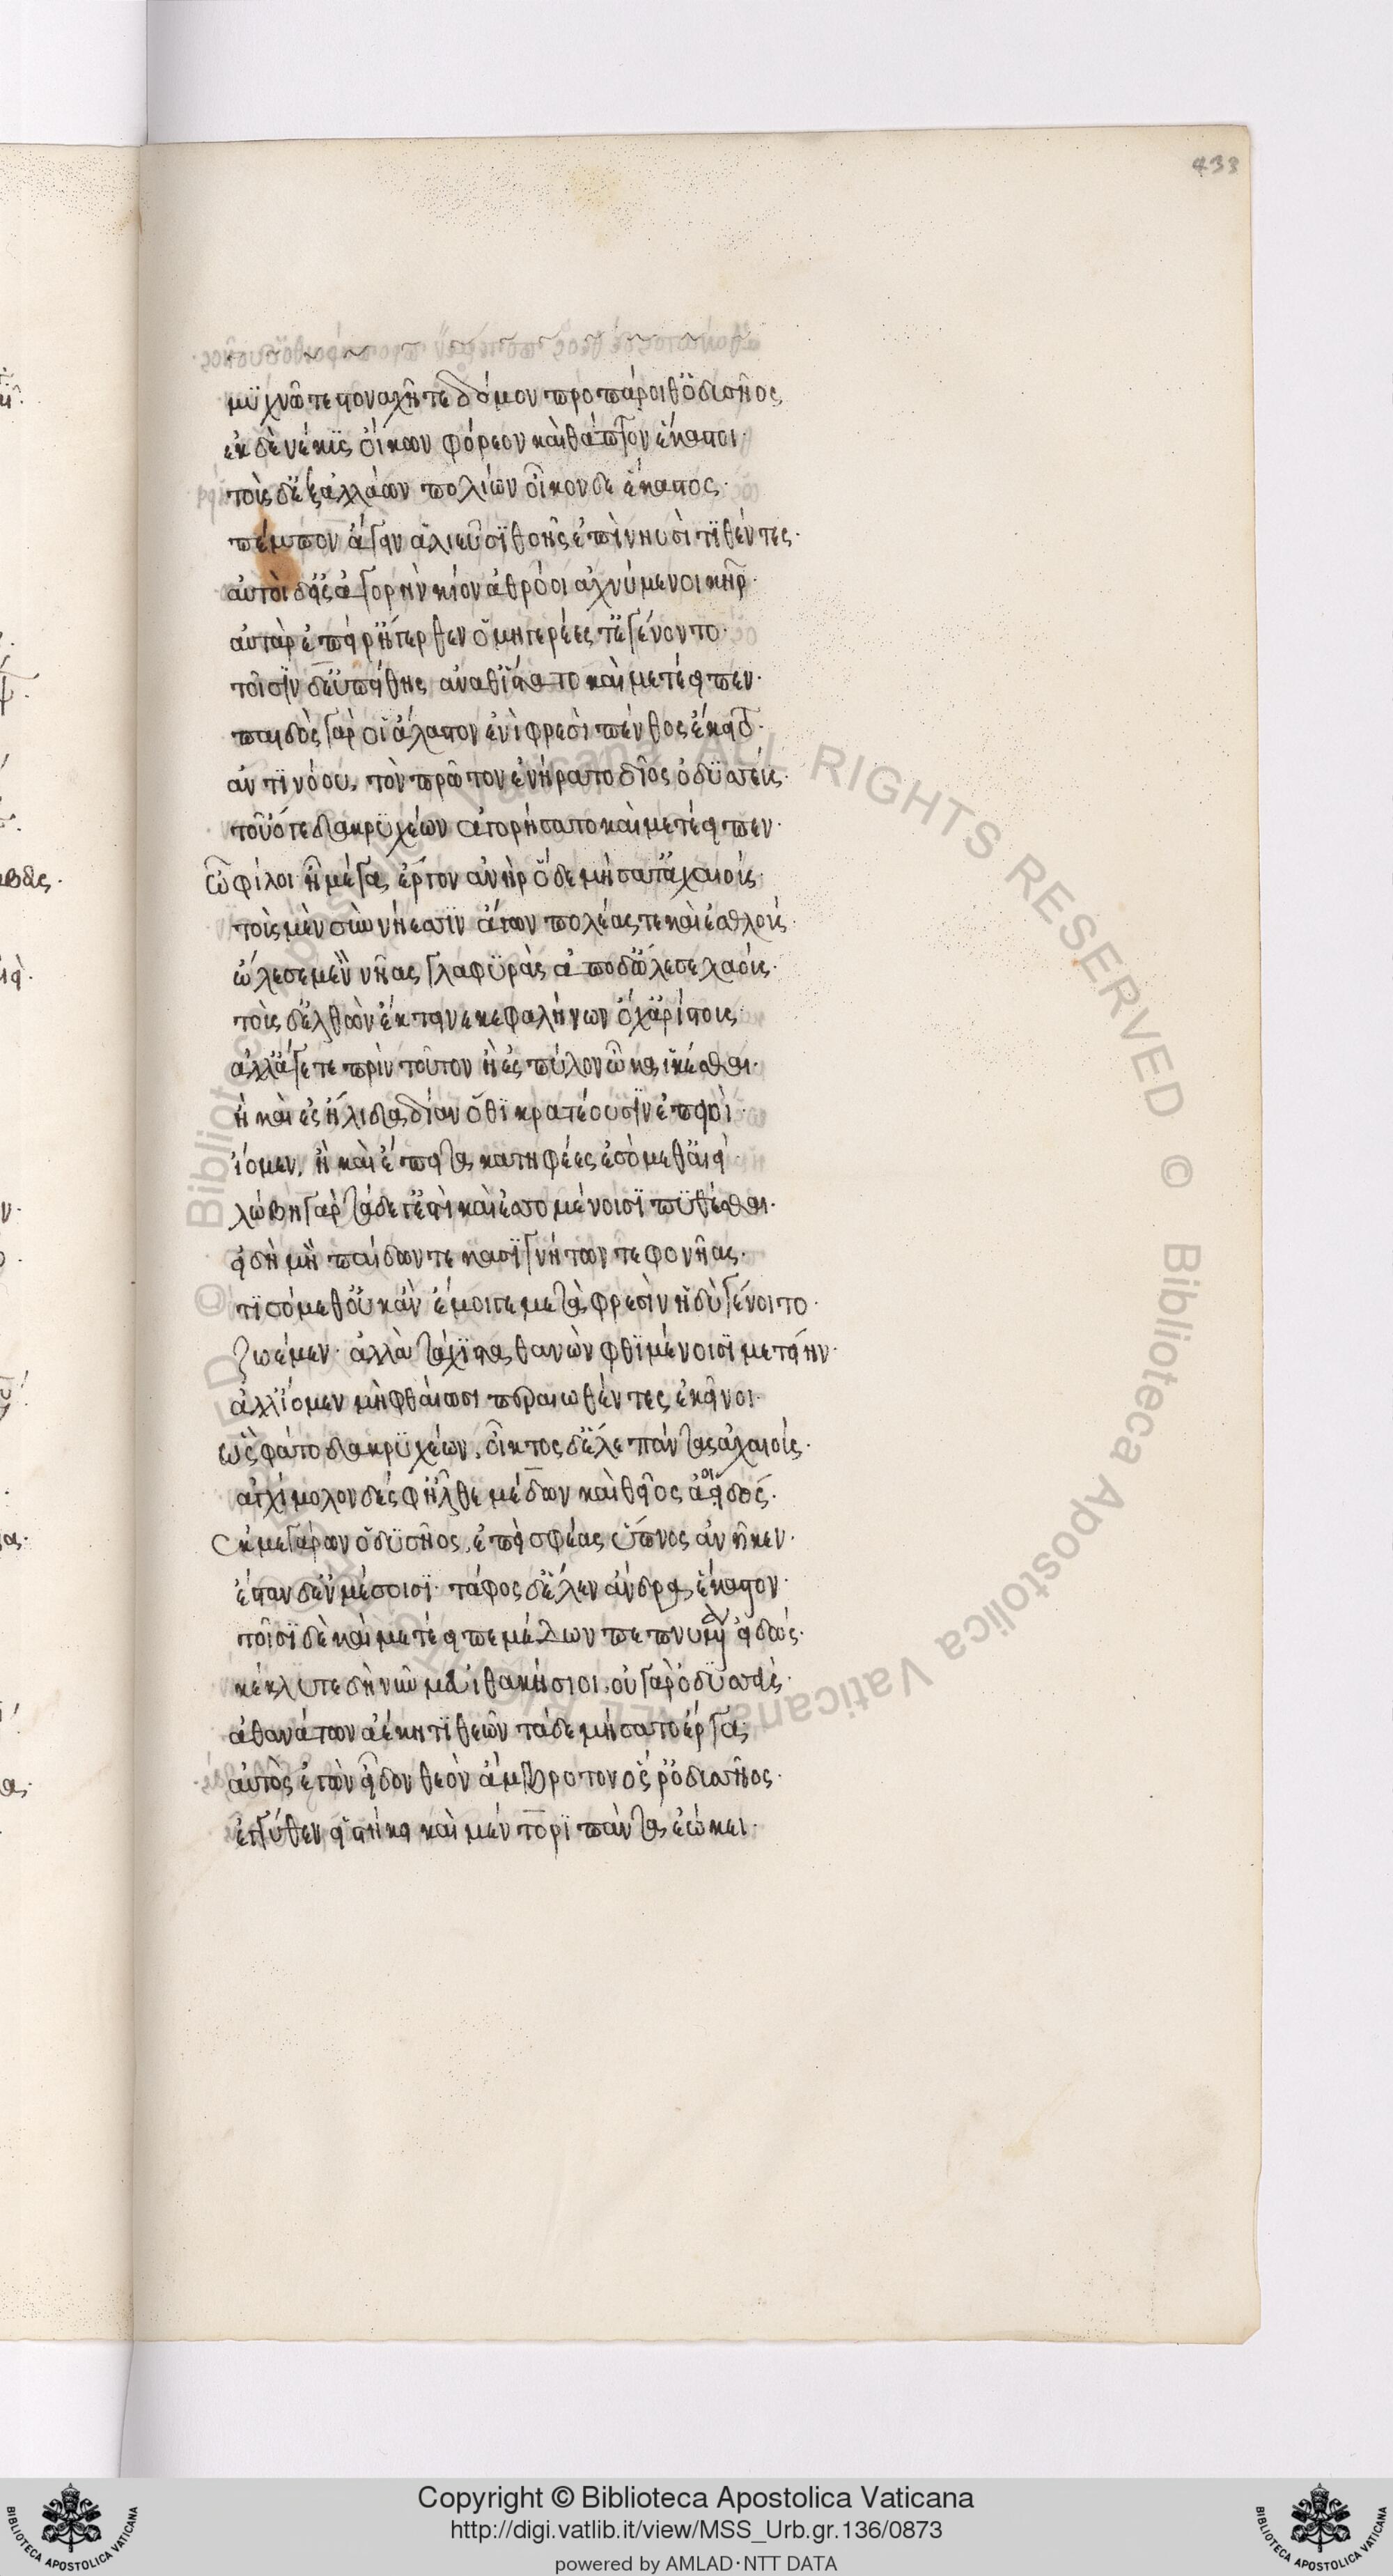 433
μυχμῶ τε στοναχῆ τε δόμων προπάροιθ' ὀδυσῆος
ἐκ δὲ νέκυς οἴκων φόρεον καὶ θάπτον ἕκαστοι·
τοὺς δ' ἐξ ἀλλάων πολίων οἶκονδε ἕκαστος·
πέμπον ἄγειν ἁλιεῦσι θοῆς ἐπὶ νηυσὶ τιθέντες·
αὐτοὶ δ' εἰς ἀγορὴν κίον ἀθρόοι ἀχνύμενοι κῆρ·
αὐτὰρ ἐπεί ῥ' ἤγερθεν ὁμηγερέες τ' ἐγένοντο·
τοῖσιν δ' εὐπείθης ἀναθίστατο καὶ μετέειπεν·
παιδὸς γάρ οἱ ἄλαστον ἐνὶ φρεσὶ πένθος ἔκειτο·
ἀντινόου, τὸν πρῶτον ἐνήρατο δῖος ὀδυσσεύς·
τοῦ ὅτε δακρυχέων ἀγορήσατο καὶ μετέειπεν·
ὦ φίλοι ἦ μέγα ἔργον ἀνὴρ ὅδε μήσατ' ἀχαιούς·
τοὺς μὲν σὺν νήεσσιν ἄγων πολέας τε καὶ ἐσθλούς·
ὤλεσε μὲν νῆας γλαφυρὰς ἀπὸ δ' ὤλεσε λαούς·
τοὺς δ' ἐλθὼν ἔκτεινε κεφαλήνων ὄχ' ἀρίστους·
ἀλλ' ἄγετε πρὶν τοῦτον ἢ ἐς πύλον ὦκα ἱκέσθαι·
ἢ καὶ ἐς ἤλιδα δῖαν ὅθι κρατέουσιν ἐπειοὶ·
ἴομεν, ἢ καὶ ἔπειτα κατηφέες ἐσόμεθ' αἰεὶ·
λώβη γὰρ τάδε γ' ἐστὶ καὶ ἐσσομένοισι πυθέσθαι·
εἰ δὴ μὴ παίδων τε κασιγνήτων τε φονῆας·
τισόμεθ' οὐκ ἂν ἔμοιγε μετὰ φρεσὶν ἡδὺ γένοιτο·
ζωέμεν· ἀλλὰ τάχιστα θανὼν φθιμένοισι μετείην·
ἀλλ' ἴομεν μὴ φθαίωσι περαιωθέντες ἐκεῖνοι·
ὣς φάτο δακρυχέων, οἶκτος δ' ἕλε πάντας ἀχαιούς·
ἀγχίμολον δέ σφ' ἦλθε μέδων καὶ θεῖος ἀοιδός·
ἐκ μεγάρων ὀδυσῆος, ἐπεί σφεας ὕπνος ἀνῆκεν·
ἔσταν δ' ἐν μέσοισι· τάφος δ' ἕλεν ἄνδρα ἕκαστον·
τοῖσι δὲ καὶ μετέειπε μέδων πεπνυμένα εἰδώς·
κέκλυτε δὴ νῦν μευ ἰθακήσιοι· οὐ γὰρ ὀδυσσεὺς·
ἀθανάτων ἀέκητι θεῶν τάδε μήσατο ἔργα·
αὐτὸς ἐγὼν εἶδον θεὸν ἄμβροτον ὅς ῥ' ὀδυσσῆος·
ἐγγύθεν εἱστήκει καὶ μέντορι πάντα ἐώκει·
Copyright © Biblioteca Apostolica Vaticana
http://digi.vatlib.it/view/MSS_Urb.gr.136/0873
powered by AMLAD·NTT DATA